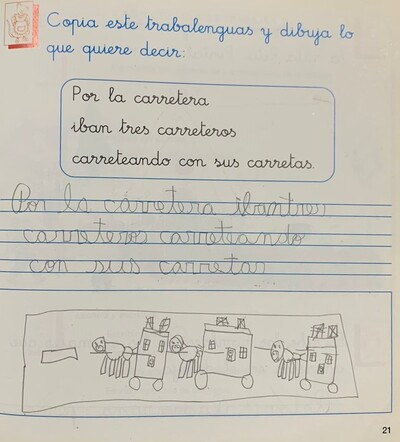 Copia este trabalenguas y dibuja lo
que quiere decir:
Por la carretera
iban tres carreteros
carreteando con sus carretas.
Por la carretera iban tres
carreteros carreteando
con sus carretas
21